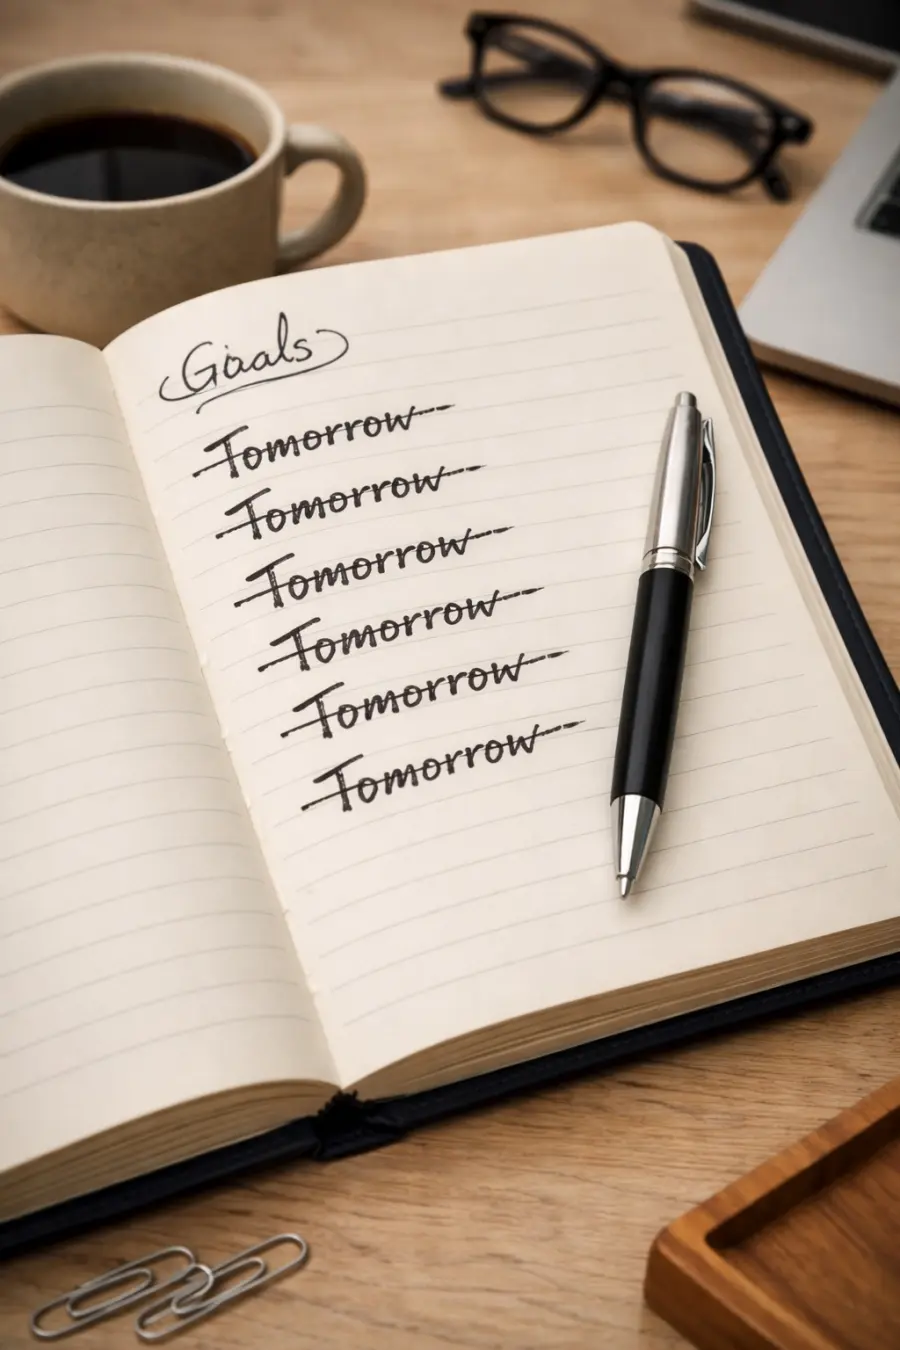 Goals
Tomorrow
Tomorrow
Tomorrow
Tomorrow
Tomorrow
Tomorrow